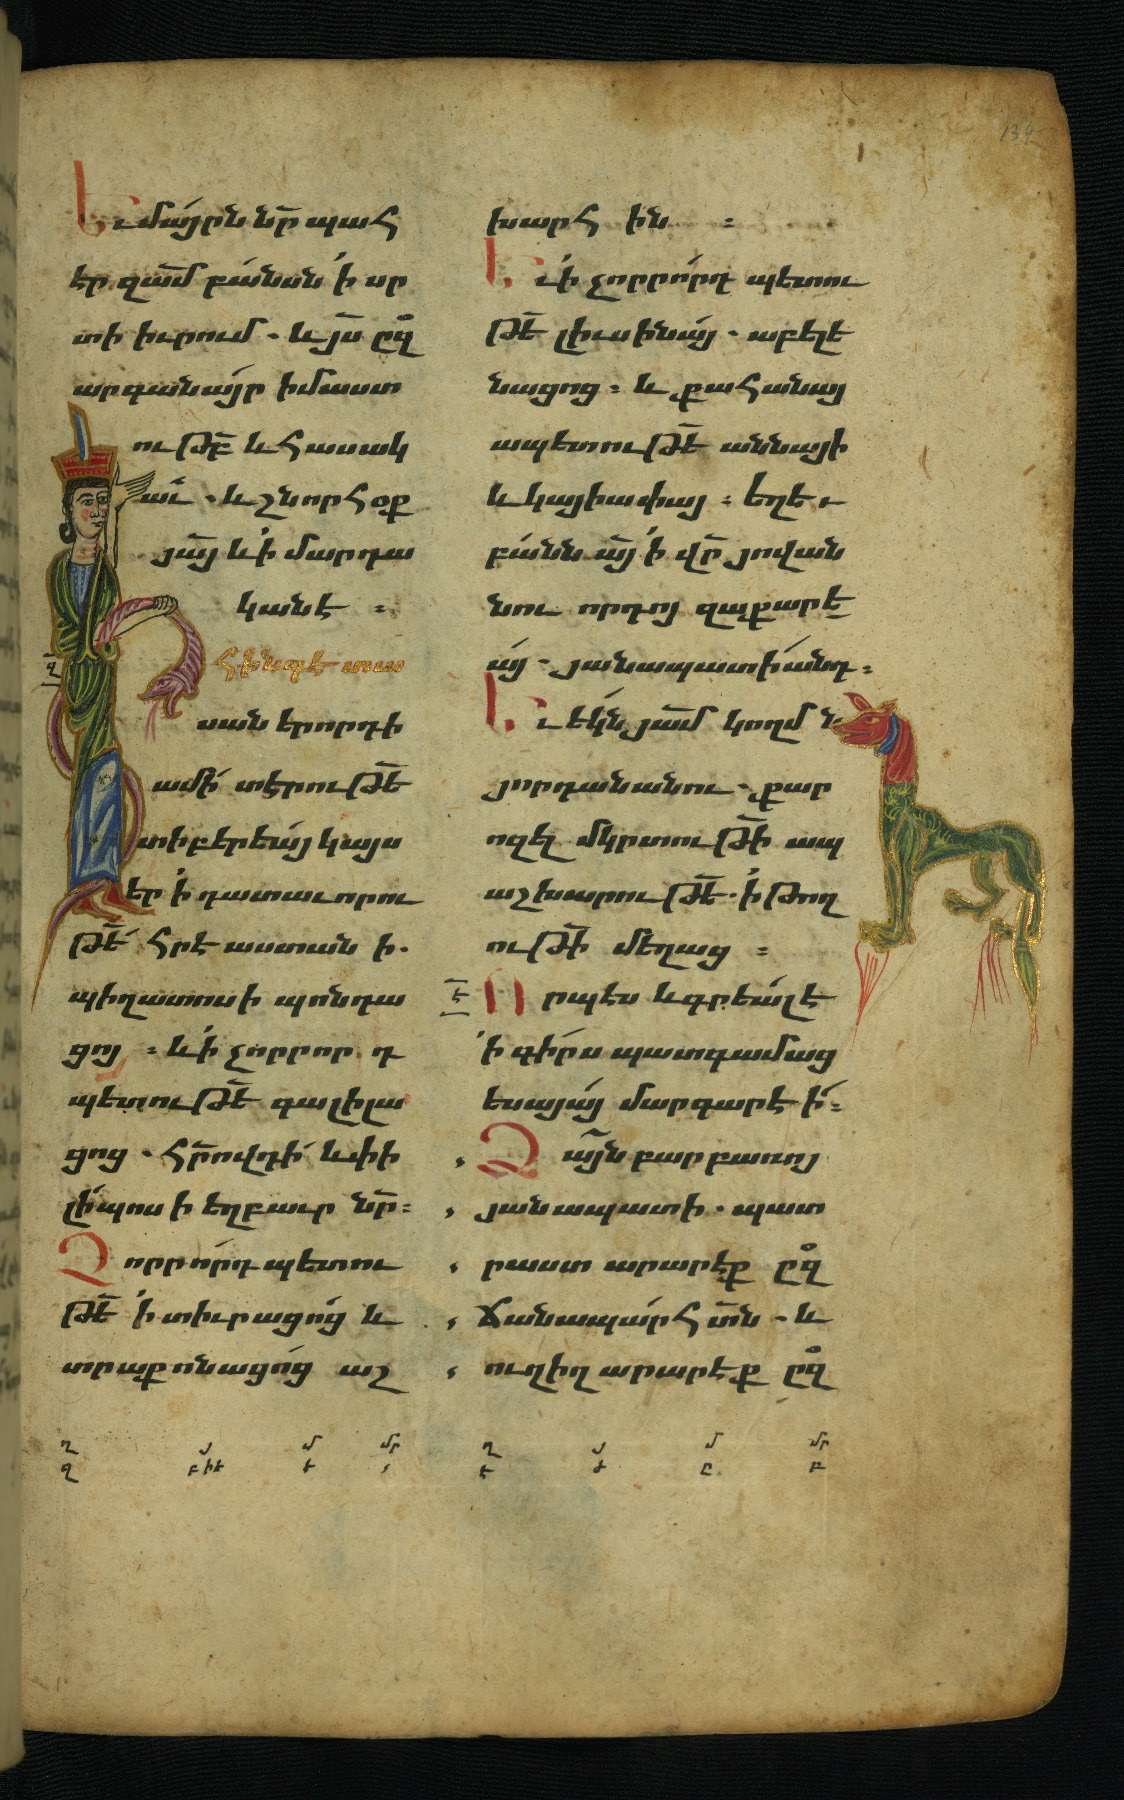 139
Եւ մայրն նր պահ
էր զամ բանսն ՛ի սր
տի իւրում . և յս ըզ
արգանայր իմաստ
ութբ և հասակ
աւ . և շնորհօք
յայ և ՛ի մարդա
կանէ ։
զ
հինգետա
սան երորդի
ամի տէրութե
տիբերեայ կայս
եր ՛ի դատաւորու
թե հրէաստան ի .
պիղատոսի պոնդա
ցոյ ։ և ՛ի չորրորդ
պետութե գալիլա
ցոց . հրովդի և փի
լիպոսի եղբաւր նր ։
Չորրորդ պետու
թե ՛ի տիւրացոց և
տրաքոնացոց աշ
խարհ ին ։
Եւ ՛ի չորրորդ պետու
թե լիւսինայ . աբելե
նացոց ։ և քահանայ
ապետութե աննայի
և կայիափայ ։ եղև
բանն այ ՛ի վր յովան
նու որդոյ զաքարե
այ . յանապատի անդ ։
Եւ եկն յամ կողմ ն
յորդանանու . քար
ոզել մկրտութի ապ
աշխարութե . ՛ի թող
ութի մեղաց ։
է
Որպէս և գրեալ է
՛ի գիրս պատգամաց
եսայայ մարգարէ ի ։
Ձայն բարբառոյ
յանապատի . պատ
րաստ արարէք ըզ
ճանապարհ տն . և
ուղիղ արարէք ըզ
ղ յ մ մր
զ բիէ է ,
ղ յ մ մր
է ժ ը բ